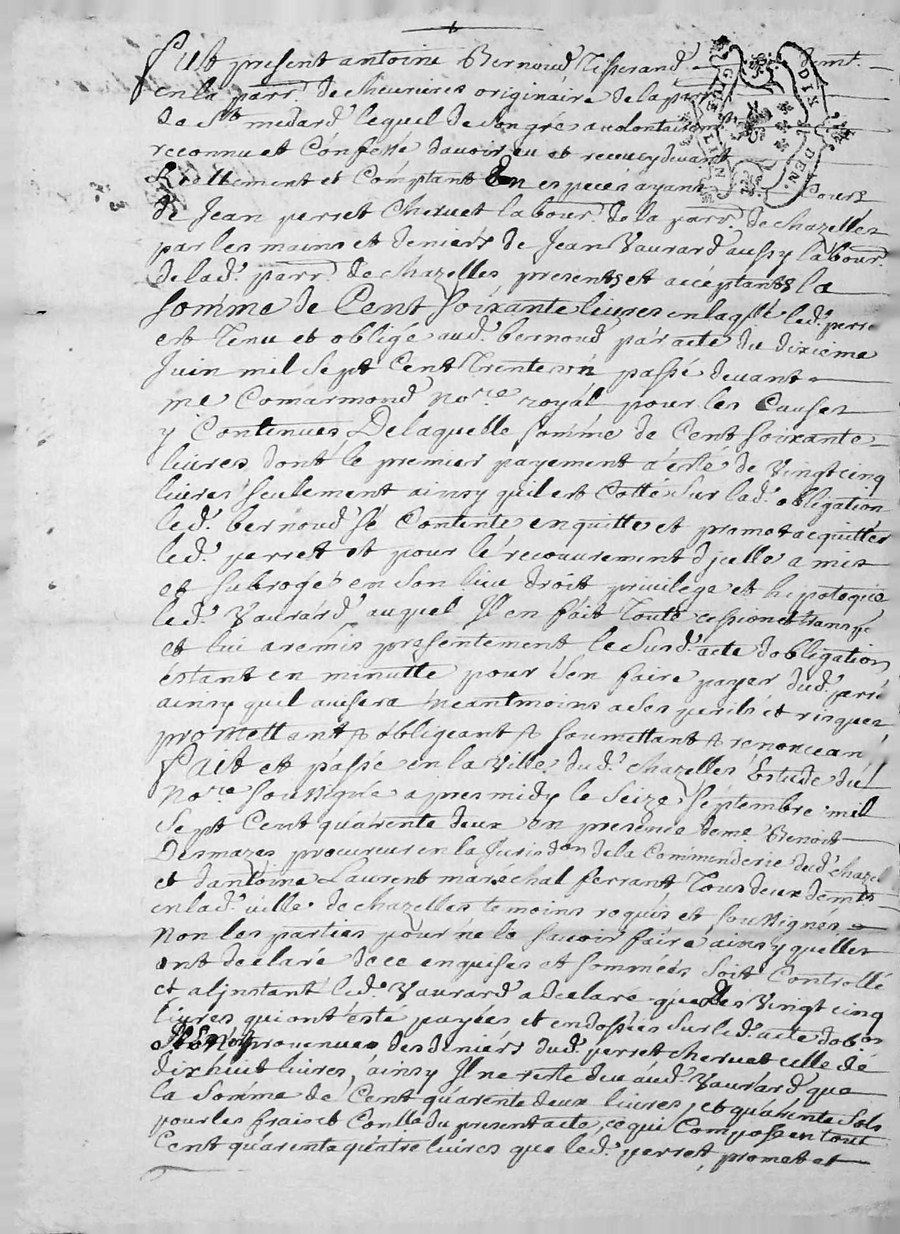 Fut present antoine Bernoud Tisserand demt.
en la parr. de chevrieres originaire de la parr
de St. medard lequel de son gré a volontairemt
reconnu et Confessé d'avoir eu et receu cy devant
Reellement et Comptant En espèces ayant Cours
de Jean perret Chervet labour. de la parr. de chazelles
par les mains et deniers de Jean Vaurard aussy labour.
de lad. parr. de chazelles presents et acceptants la
somme de Cent soixante livres en laqlle led. perre
est Tenu et obligé aud. bernoud par acte du dixieme
Juin mil Sept Cent Trente un passé devant
me Comarmond no.re royal pour les Causes
y Contenues De laquelle somme de Cent soixante
livres, dont le premier payement a esté de vingt cinq
livres seulement ainsy quil est Cotté Sur lad. obligation
led. bernoud se Contente en quitte et promet acquitter
led. perret et pour le recouvrement dicelle a mis
et subrogé en son lieu droit privilege et hipoteque
led. Vaurard auquel Il en fait Toute cession et transp
et lui a remis presentement le Surd. acte d'obligation
estant en minutte pour s'en faire payer dud. perre
ainsy quil avisera neantmoins a ses perils et risques
promettant obligeant soumettant renonceant
Fait et passe en la Ville dud. chazelles Estude du
No.re soussigné apres midy le Seize Septembre mil
Sept Cent quarente deux en presence de me Benoit
Desmazes procureur en la Jurisdon de la Commenderie dud. chazel
et d'antoine Laurent marechal ferrant Tous deux demts
en lad. ville de chazelles temoins requis et soussignés
Non les parties pour ne le savoir faire ainsy quelles
ont declare de ce enquises et sommées Soit Controllé
et a linstant led. Vaurard a declaré que Les Vingt cinq
livres qui ont esté payées et endossées Sur led. acte dobon
provenues des deniers dud. perret chervet celle de
dix huit livres, ainsy Il ne reste deu aud. Vaurard que
la Somme de Cent quarente deux livres, et quarente Sols
pour les frais et Conlle du present acte, ce qui Compose en tout
Cent quarente quatre livres que led. perret, promet et
GUE LLIN
DIX DEN.